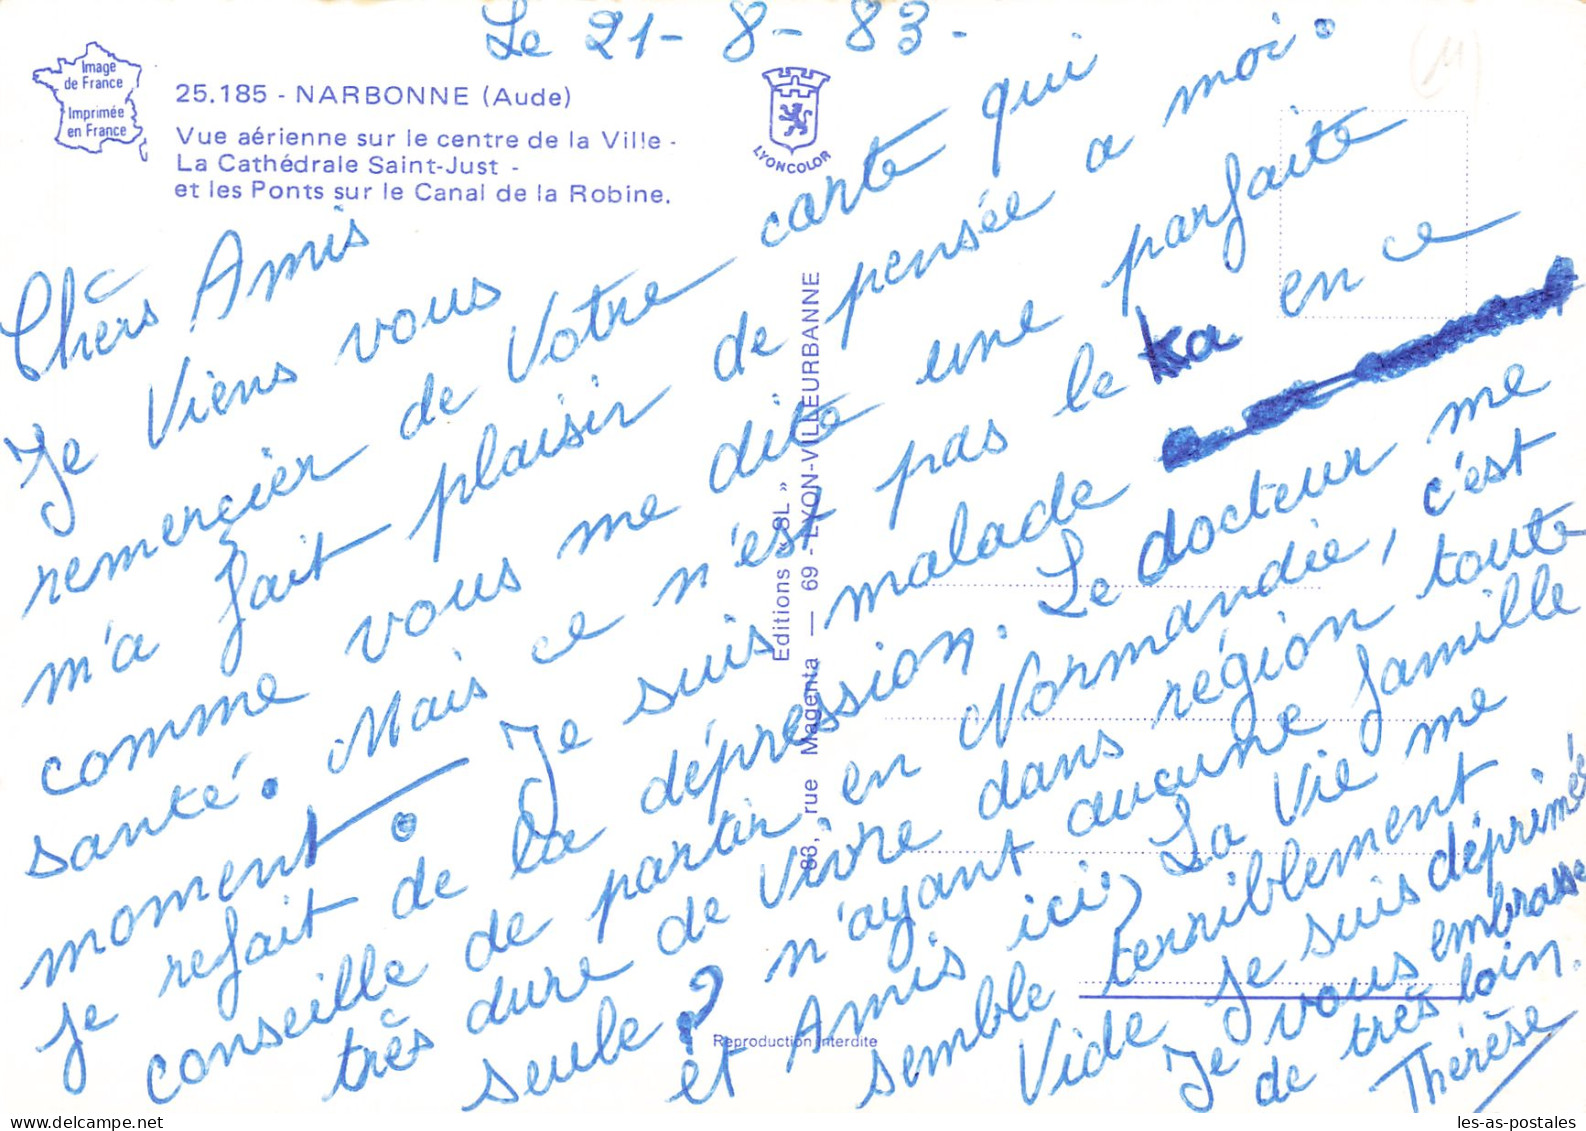 Le 21-8-83.
Image
de France
Imprimée
en France
25.185 - NARBONNE (Aude)
Vue aérienne sur le centre de la Ville -
La Cathédrale Saint-Just -
et les Ponts sur le Canal de la Robine.
LYONCOLOR
Editions « SL »
83, rue Magenta — 69 - LYON-VILLEURBANNE
Reproduction interdite
Chèrs Amis
Je Viens vous
remercier de Votre carte qui
m'a fait plaisir de pensée a moi.
comme vous me dite une parfaite
santé. Mais ce n'est pas le ka en ce
moment. Je suis malade
je refait de la dépression. Le docteur me
conseille de partir en Normandie, c'est
très dure de Vivre dans région toute
seule? n'ayant aucune famille
et Amis ici, La Vie me
semble terriblement
Vide je suis déprimée
Je vous embrasse
de très loin.
Thérèse
les-as-postales